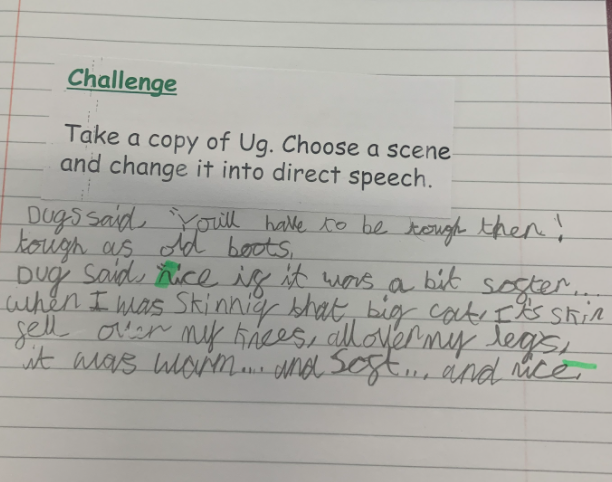 Challenge
Take a copy of Ug. Choose a scene
and change it into direct speech.
Dugs said, "You'll have to be tough then!
tough as old boots.
Dug said, "nice if it was a bit softer...
when I was skinnig that big cat, It's skin
fell over my knees, all over my legs,
it was warm... and soft... and nice.